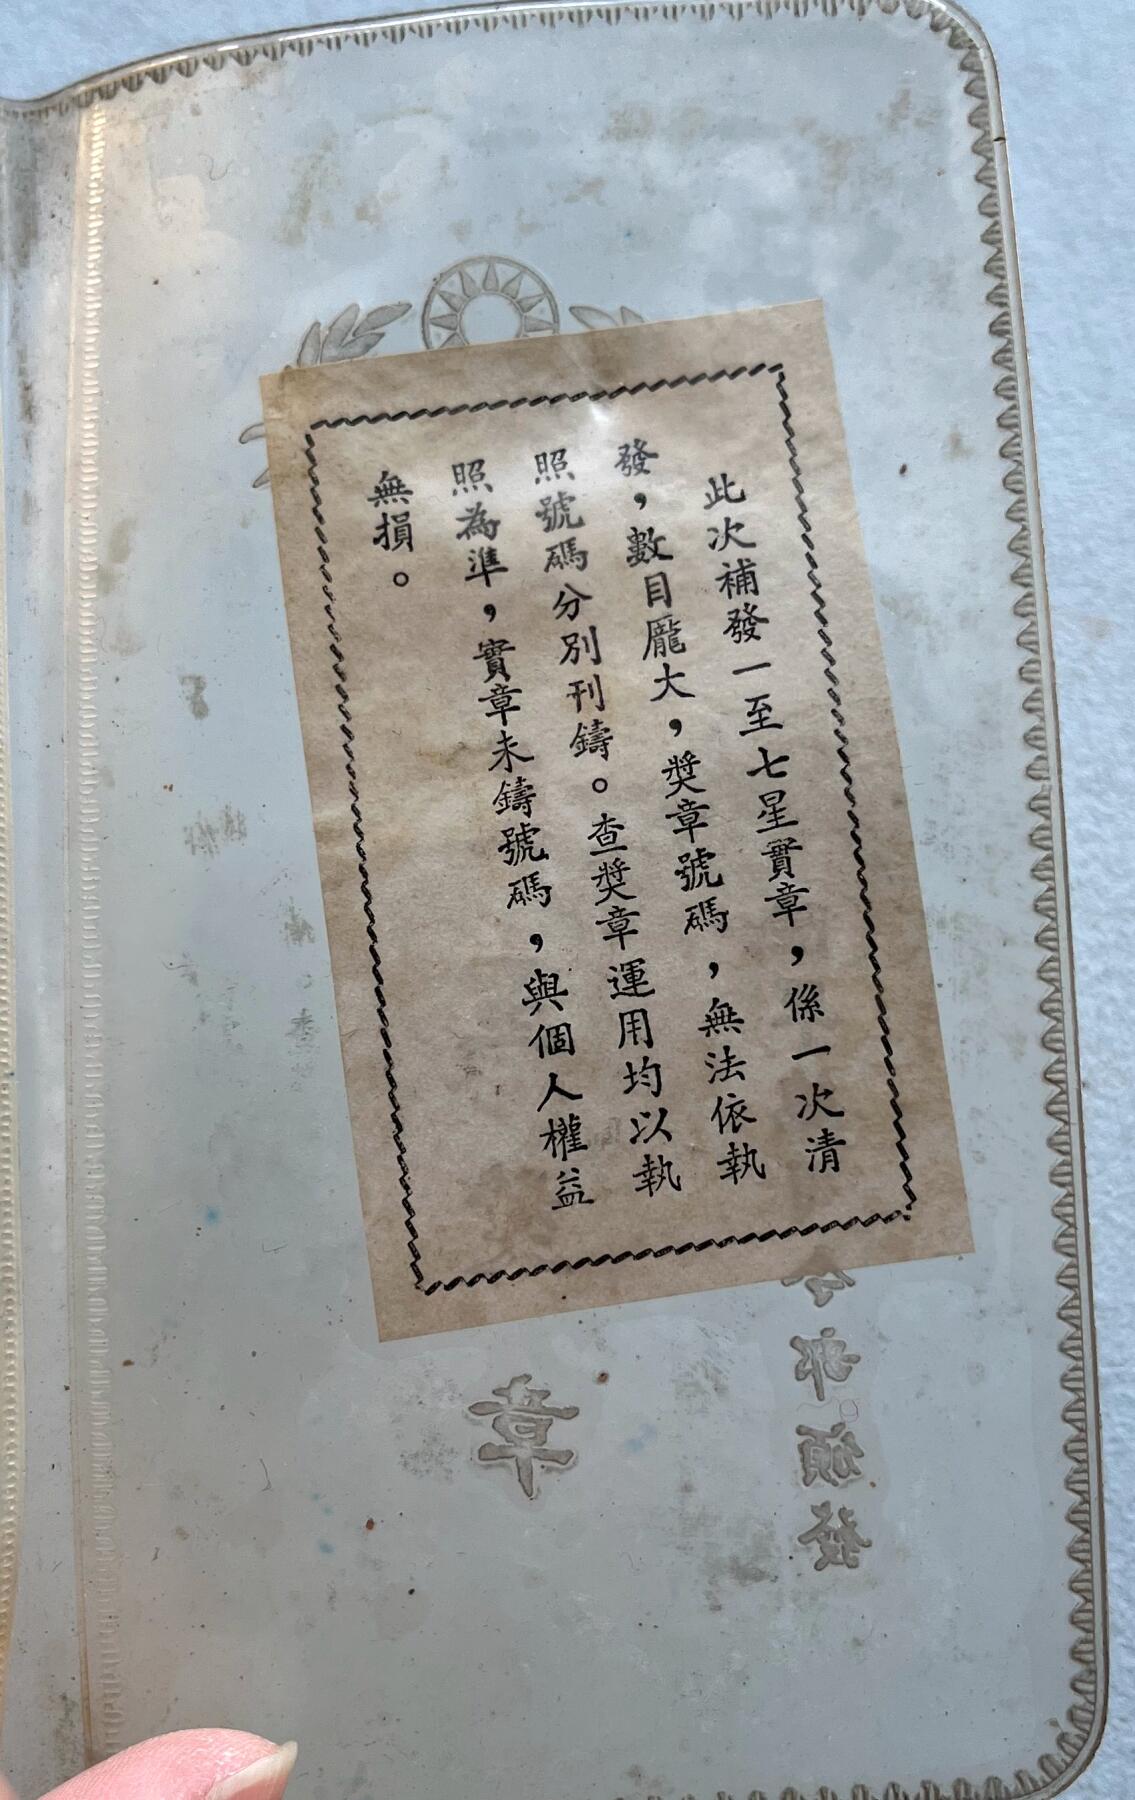 此次補發一至七星實章，係一次清
發，數目龐大，獎章號碼，無法依執
照號碼分別刊鑄。查獎章運用均以執
照為準，實章未鑄號碼，與個人權益
無損。
部頒發
章